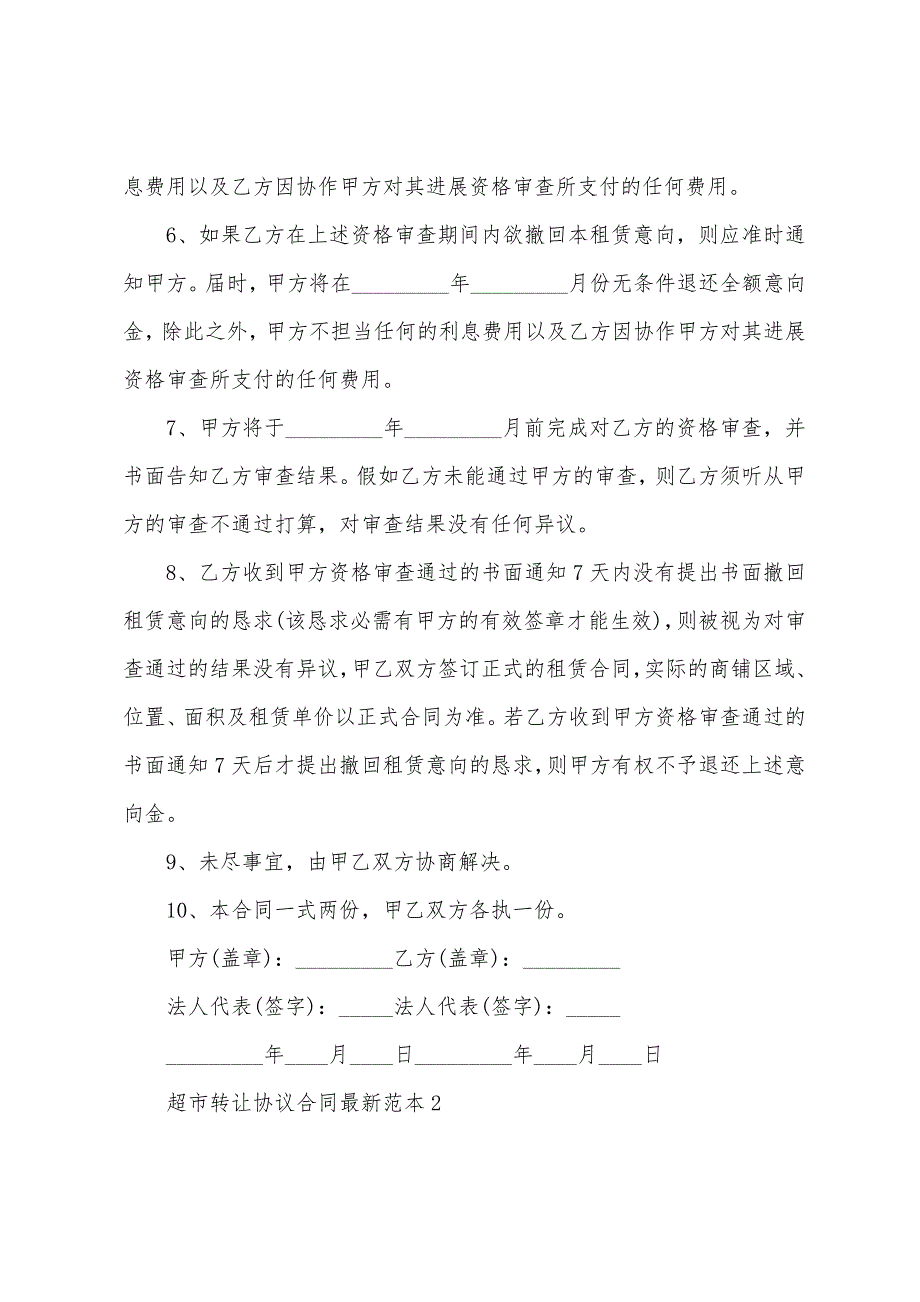 息费用以及乙方因协作甲方对其进展资格审查所支付的任何费用。
6、如果乙方在上述资格审查期间内欲撤回本租赁意向，则应准时通
知甲方。届时，甲方将在_________年_________月份无条件退还全额意向
金，除此之外，甲方不担当任何的利息费用以及乙方因协作甲方对其进展
资格审查所支付的任何费用。
7、甲方将于_________年_________月前完成对乙方的资格审查，并
书面告知乙方审查结果。假如乙方未能通过甲方的审查，则乙方须听从甲
方的审查不通过打算，对审查结果没有任何异议。
8、乙方收到甲方资格审查通过的书面通知7天内没有提出书面撤回
租赁意向的恳求(该恳求必需有甲方的有效签章才能生效)，则被视为对审
查通过的结果没有异议，甲乙双方签订正式的租赁合同，实际的商铺区域、
位置、面积及租赁单价以正式合同为准。若乙方收到甲方资格审查通过的
书面通知7天后才提出撤回租赁意向的恳求，则甲方有权不予退还上述意
向金。
9、未尽事宜，由甲乙双方协商解决。
10、本合同一式两份，甲乙双方各执一份。
甲方(盖章)：_________乙方(盖章)：_________
法人代表(签字)：_____法人代表(签字)：_____
_________年____月____日_________年____月____日
超市转让协议合同最新范本2